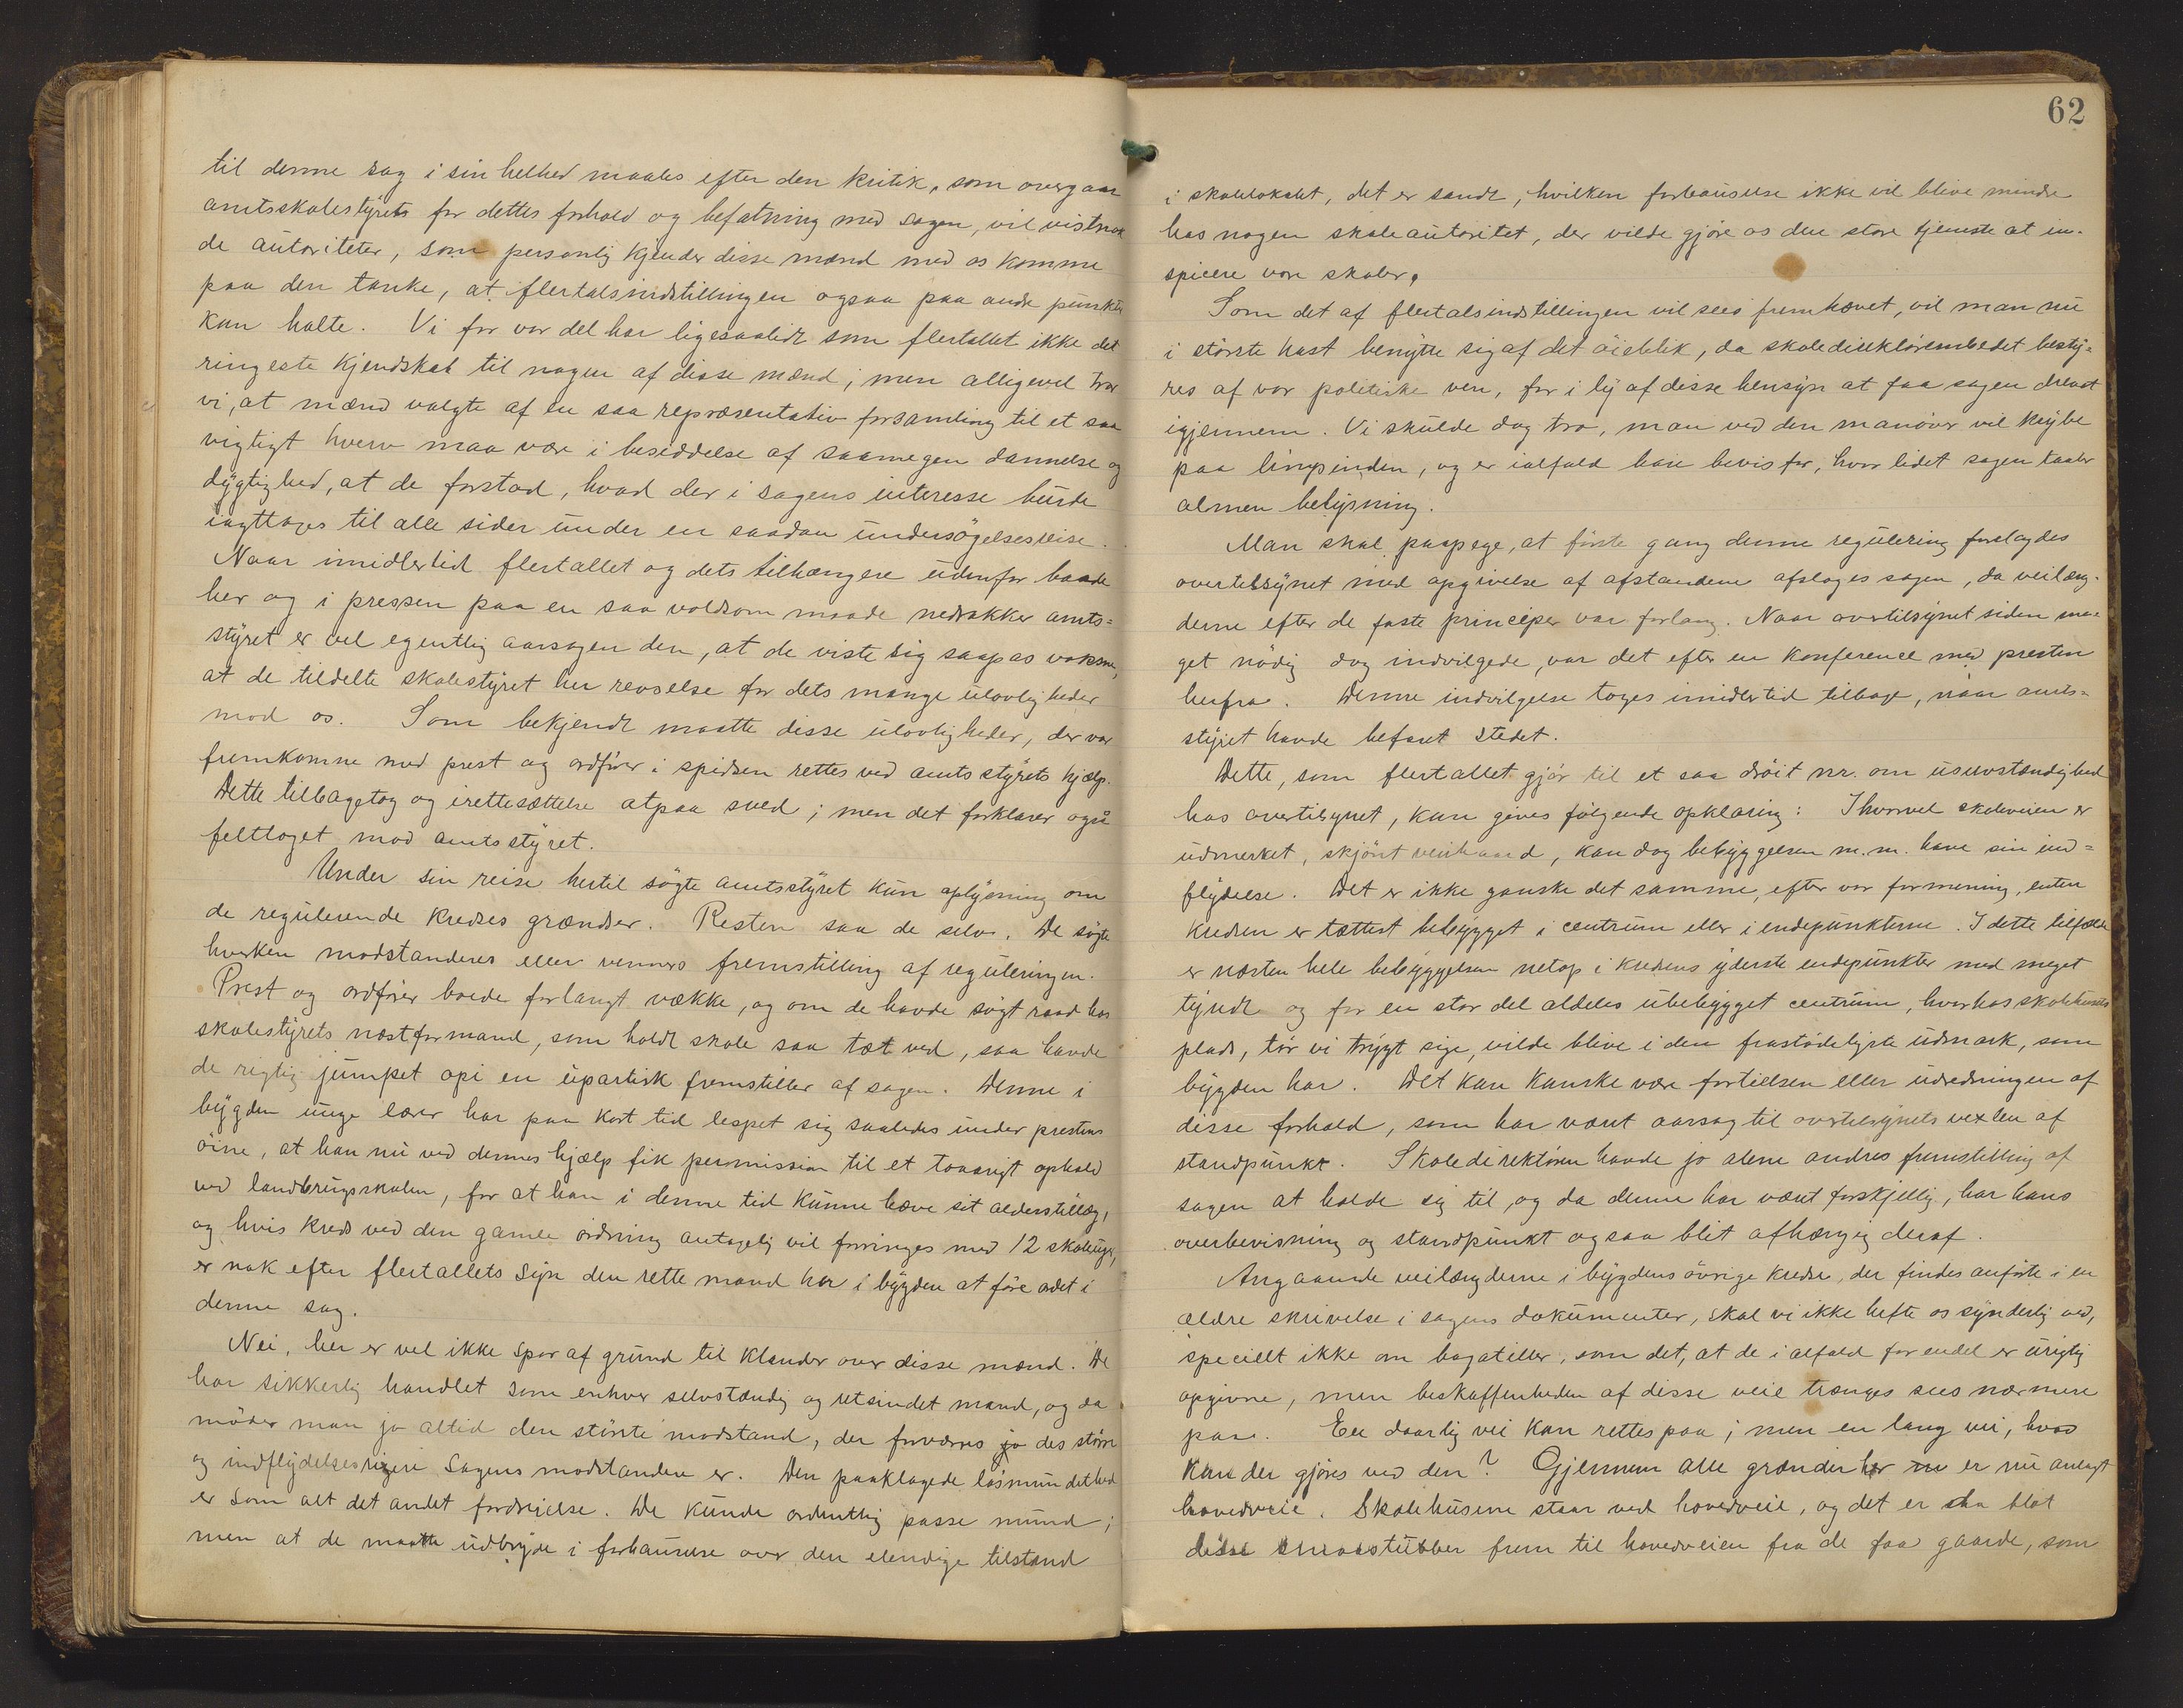 til denne sag i sin helhed maales efter den kritik, som overgaar
amtsskolestyrets for dettes forhold og befatning med sagen, vil vistnok
de autoriteter, som personlig kjender disse mænd med os komme
paa den tanke, at flertalsindstillingen ogsaa paa andre punkter
kan halte. Vi for vor del har ligesaalidt som flertallet ikke det
ringeste kjendskab til nogen af disse mænd; men alligevel tror
vi, at mænd valgte af en saa repræsentativ forsamling til et saa
vigtigt hverv maa være i besiddelse af saamegen dannelse og
dygtighed, at de forstod, hvad der i sagens interesse burde
iagttages til alle sider under en saadan undersøgelsesreise.
Naar imidlertid flertallet og dets tilhængere udenfor baade
her og i pressen paa en saa voldsom maade nedrakker amts=
styret er vel egentlig aarsagen den, at de viste sig saapas voksne,
at de tildelte skolestyret her revselse for dets mange ulovligheder
mod os. Som bekjendt maatte disse ulovligheder, der var
fremkomne med prest og ordfører i spidsen rettes ved amtsstyrets hjælp.
Dette tilbagetog og irettesættelse atpaa sved; men det forklarer også
felttoget mod amtsstyret.
Under sin reise hertil søgte amtsstyret kun oplysning om
de regulerende kredses grændser. Resten saa de selv. De søgte
hverken modstanderes eller venners fremstilling af reguleringen.
Prest og ordfører boede forlangt vække, og om de havde søgt raad hos
skolestyrets næstformand, som holdt skole saa tæt ved, saa havde
de rigtig jumpet opi en upartisk fremstiller af sagen. Denne i
bygden unge lærer har paa kort tid lespet sig saaledes under prestens
øine, at han nu ved dennes hjælp fik permission til et toaarigt ophold
ved landbrugsskolen, for at han i denne tid kunne hæve sit alderstillæg,
og hvis kreds ved den gamle ordning antagelig vil forringes med 12 skoleuger,
er nok efter flertallets syn den rette mand her i bygden at føre ordet i
denne sag.
Nei, her er vel ikke spor af grund til klander over disse mænd. De
har sikkerlig handlet som enhver selvstændig og retsindet mand, og da
møder man jo altid den største modstand, der forværres jo des større
og indflydelsesrigere sagens modstandere er. Den paaklagede løsmundethed
er som alt det andet fordreielse. De kunde ordentlig passe mund;
men at de maatte udbryde i forbauselse over den elendige tilstand
62
i skolelokalet, det er sandt, hvilken forbauselse ikke vil blive mindre
hos nogen skoleautoritet, der vilde gjøre os den store tjeneste at in-
spicere vore skoler.
Som det af flertalsindstillingen vil sees fremhævet, vil man nu
i største hast benytte sig af det øieblik, da skoledirektørembedet besty=
res af vor politiske ven, for i ly af disse hensyn at faa sagen drevet
igjennem. Vi skulde dog tro, man ved den manøver vil krybe
paa limpinden, og er ialfald bare bevis for, hvor lidet sagen taaler
almen belysning.
Man skal paapege, at første gang denne regulering forelagdes
overtilsynet med opgivelse af afstandene afsloges sagen, da veilæng-
derne efter de faste principer var forlang. Naar overtilsynet siden me=
get nødig dog indvilgede, var det efter en konference med presten
herfra. Denne indvilgelse toges imidlertid tilbage, naar amts=
styret havde befaret stedet.
Dette, som flertallet gjør til et saa drøit nr. om uselvstændighed
hos overtilsynet, kan gives følgende opklaring: Ihvorvel skoleveien er
udmerket, skjønt veiihaard, kan dog bebyggelsen m.m. have sin ind=
flydelse. Det er ikke ganske det samme, efter vor formening, enten
kredsen er tættest bebygget i centrum eller i endepunkterne. I dette tilfælde
er næsten hele bebyggelsen netop i kredsens yderste endepunkter med meget
tyndt og for en stor del aldeles ubebygget centrum, hvorhos skolehusets
plads, tør vi trygt sige, vilde blive i den frastødeligste udmark, som
bygden har. Det kan kanske være fortielsen eller udredningen af
disse forhold, som har været aarsag til overtilsynets vexlen af
standpunkt. Skoledirektøren havde jo alene andres fremstilling af
sagen at holde sig til, og da denne har været forskjellig, har hans
overbevisning og standpunkt ogsaa blit afhængig deraf.
Angaaende veilængderne i bygdens øvrige kredse, der findes anførte i en
ældre skrivelse i sagens dokumenter, skal vi ikke hefte os synderlig ved,
specielt ikke om bagateller, som det, at de i alfald for endel er urigtig
opgivne, men beskaffenheden af disse veie trænges sees nærmere
paa. En daarlig vei kan rettes paa; men en lang vei, hvad
kan der gjøres ved den? Gjennem alle grænder her er nu anlagt
hovedveie. Skolehusene staar ved hovedveie, og det er saa blot
disse smaastubber frem til hovedveien fra de faa gaarde, som